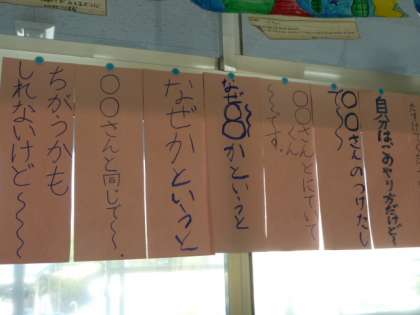 自分はこのやり方だけど〜
〇〇さんのつけたし
で〜〜
〇〇さんとにていて
くん
〜〜です。
なぜ〇〇かというと
なぜかというと
〇〇さんと同じで〜〜。
ちがうかも
しれないけど〜〜〜